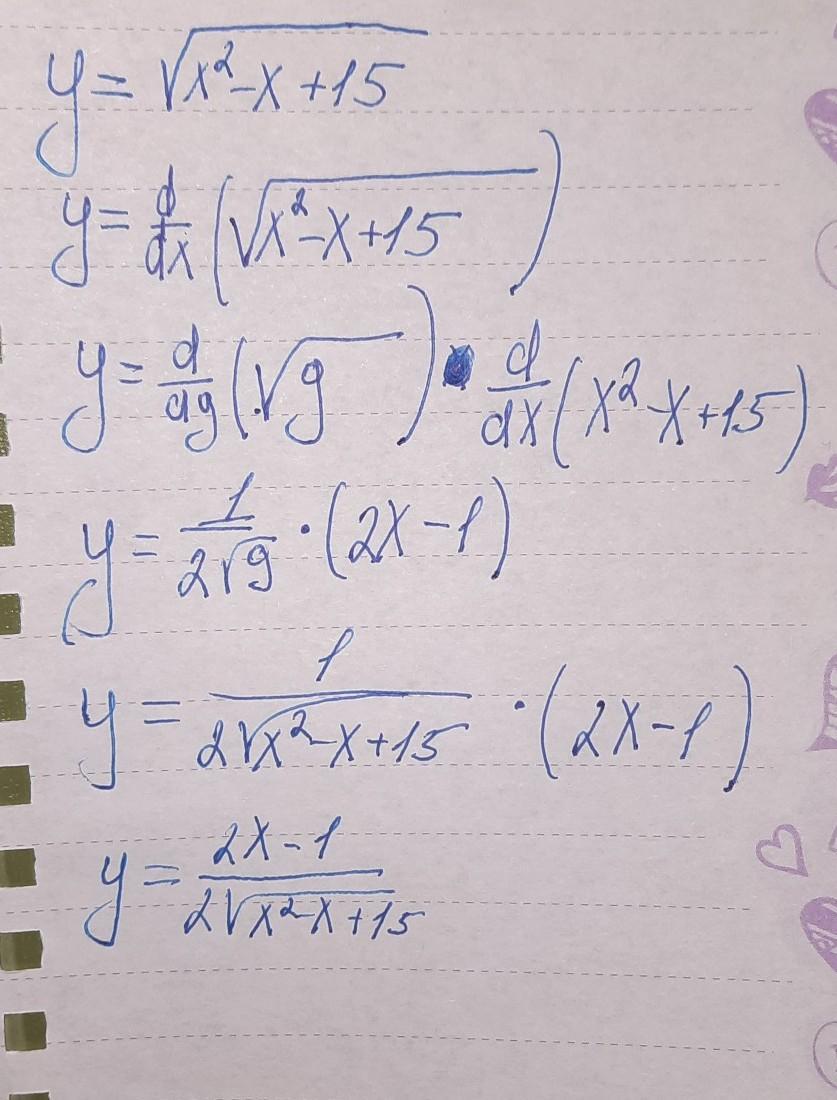 y = √(x² - x + 15)
y = d/dx (√(x² - x + 15))
y = d/dg (√g) · d/dx (x² - x + 15)
y = 1/(2√g) · (2x - 1)
y = 1/(2√(x² - x + 15)) · (2x - 1)
y = (2x - 1)/(2√(x² - x + 15))